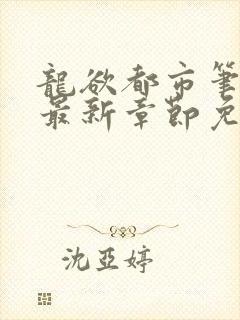 龍欲都市筆
最新章節免
沈亞婷